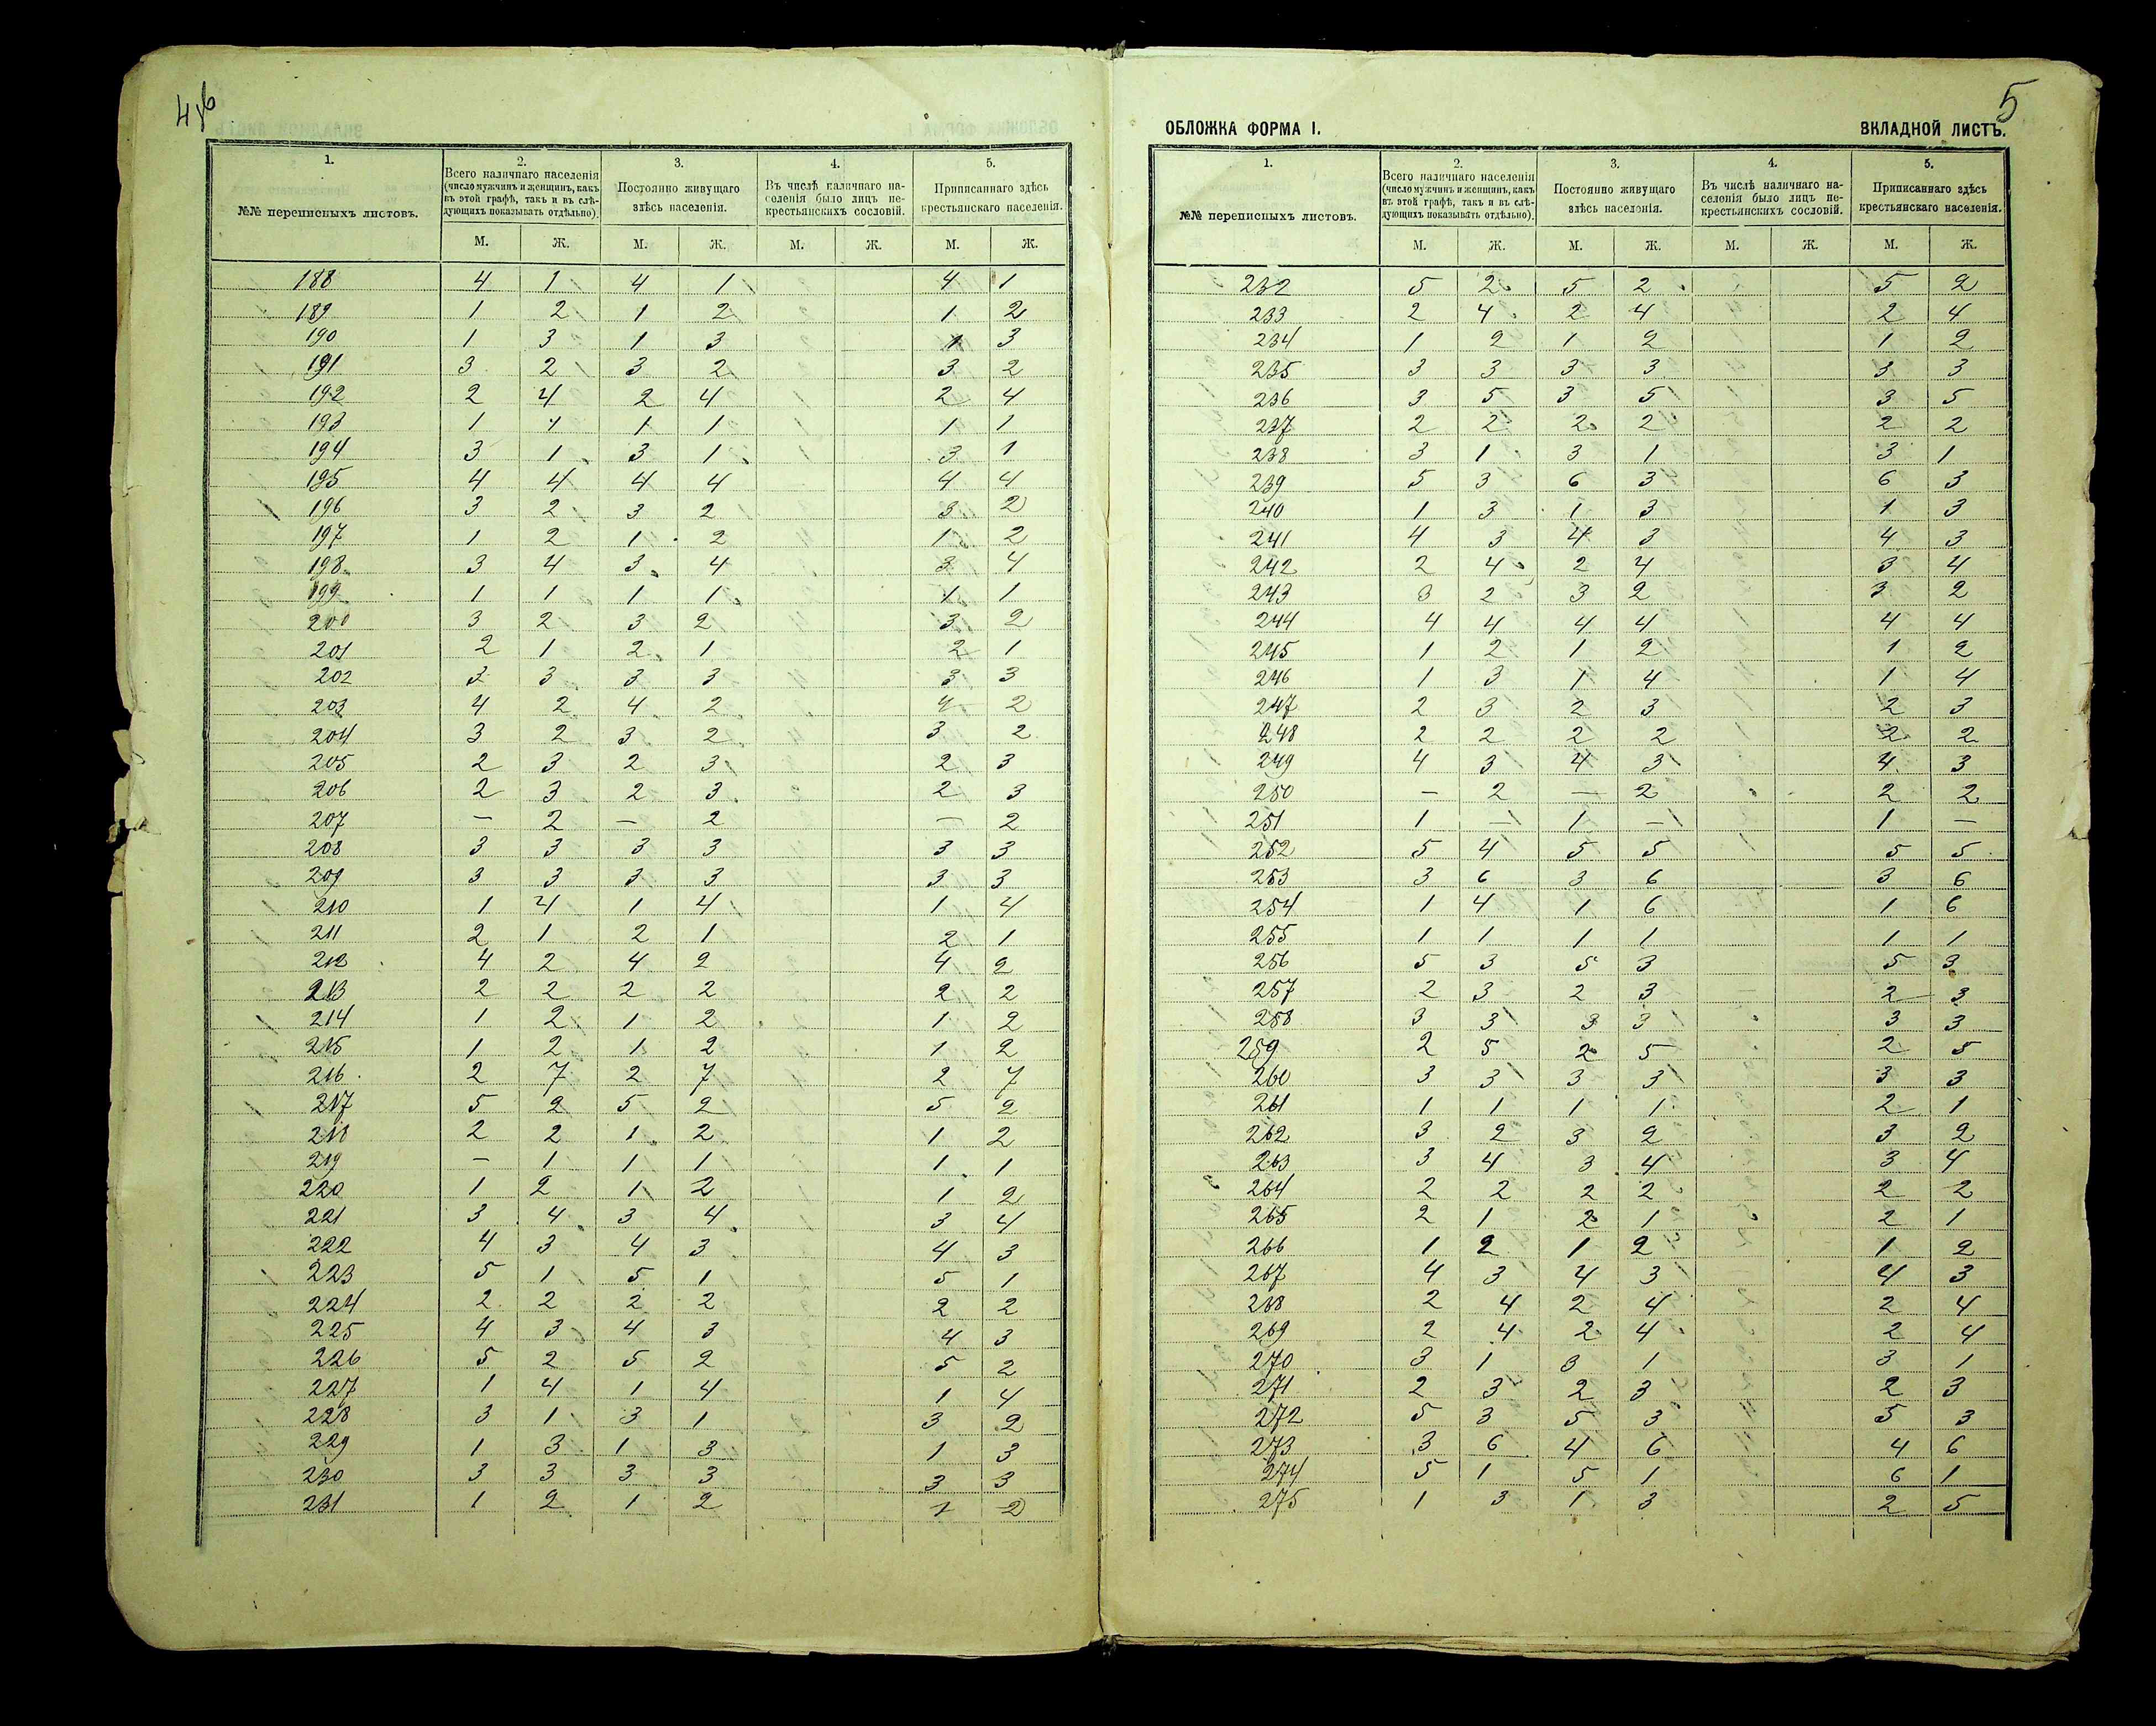 4об
1. 2. 3. 4. 5.
№№ переписныхъ листовъ. Всего наличнаго населенія (число мужчинъ и женщинъ, какъ въ этой графѣ, такъ и въ слѣдующихъ показывать отдѣльно). Постоянно живущаго здѣсь населенія. Въ числѣ наличнаго населенія было лицъ некрестьянскихъ сословій. Приписаннаго здѣсь крестьянскаго населенія.
М. Ж. М. Ж. М. Ж. М. Ж.
188 4 1 4 1 4 1
189 1 2 1 2 1 2
190 1 3 1 3 1 3
191 3 2 3 2 3 2
192 2 4 2 4 2 4
193 1 1 1 1 1 1
194 3 1 3 1 3 1
195 4 4 4 4 4 4
196 3 2 3 2 3 2
197 1 2 1 2 1 2
198 3 4 3 4 3 4
199 1 1 1 1 1 1
200 3 2 3 2 3 2
201 2 1 2 1 2 1
202 3 3 3 3 3 3
203 4 2 4 2 4 2
204 3 2 3 2 3 2
205 2 3 2 3 2 3
206 2 3 2 3 2 3
207 — 2 — 2 — 2
208 3 3 3 3 3 3
209 3 3 3 3 3 3
210 1 4 1 4 1 4
211 2 1 2 1 2 1
212 4 2 4 2 4 2
213 2 2 2 2 2 2
214 1 2 1 2 1 2
215 1 2 1 2 1 2
216 2 7 2 7 2 7
217 5 2 5 2 5 2
218 2 2 1 2 1 2
219 — 1 1 1 1 1
220 1 2 1 2 1 2
221 3 4 3 4 3 4
222 4 3 4 3 4 3
223 5 1 5 1 5 1
224 2 2 2 2 2 2
225 4 3 4 3 4 3
226 5 2 5 2 5 2
227 1 4 1 4 1 4
228 3 1 3 1 3 2
229 1 3 1 3 1 3
230 3 3 3 3 3 3
231 1 2 1 2 1 2
5
ОБЛОЖКА ФОРМА I. ВКЛАДНОЙ ЛИСТЪ.
1. 2. 3. 4. 5.
№№ переписныхъ листовъ. Всего наличнаго населенія (число мужчинъ и женщинъ, какъ въ этой графѣ, такъ и въ слѣдующихъ показывать отдѣльно). Постоянно живущаго здѣсь населенія. Въ числѣ наличнаго населенія было лицъ некрестьянскихъ сословій. Приписаннаго здѣсь крестьянскаго населенія.
М. Ж. М. Ж. М. Ж. М. Ж.
232 5 2 5 2 5 2
233 2 4 2 4 2 4
234 1 2 1 2 1 2
235 3 3 3 3 3 3
236 3 5 3 5 3 5
237 2 2 2 2 2 2
238 3 1 3 1 3 1
239 5 3 6 3 6 3
240 1 3 1 3 1 3
241 4 3 4 3 4 3
242 2 4 2 4 3 4
243 3 2 3 2 3 2
244 4 4 4 4 4 4
245 1 2 1 2 1 2
246 1 3 1 4 1 4
247 2 3 2 3 2 3
248 2 2 2 2 2 2
249 4 3 4 3 4 3
250 — 2 — 2 2 2
251 1 — 1 — 1 —
252 5 4 5 5 5 5
253 3 6 3 6 3 6
254 1 4 1 6 1 6
255 1 1 1 1 1 1
256 5 3 5 3 5 3
257 2 3 2 3 2 3
258 3 3 3 3 3 3
259 2 5 2 5 2 5
260 3 3 3 3 3 3
261 1 1 1 1 2 1
262 3 2 3 2 3 2
263 3 4 3 4 3 4
264 2 2 2 2 2 2
265 2 1 2 1 2 1
266 1 2 1 2 1 2
267 4 3 4 3 4 3
268 2 4 2 4 2 4
269 2 4 2 4 2 4
270 3 1 3 1 3 1
271 2 3 2 3 2 3
272 5 3 5 3 5 3
273 3 6 4 6 4 6
274 5 1 5 1 6 1
275 1 3 1 3 2 5